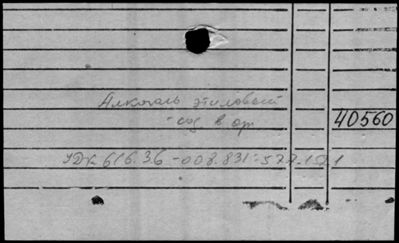 Алкоголь этиловый
- сод в орг
40560
УДК 616.36-008.831:577.121